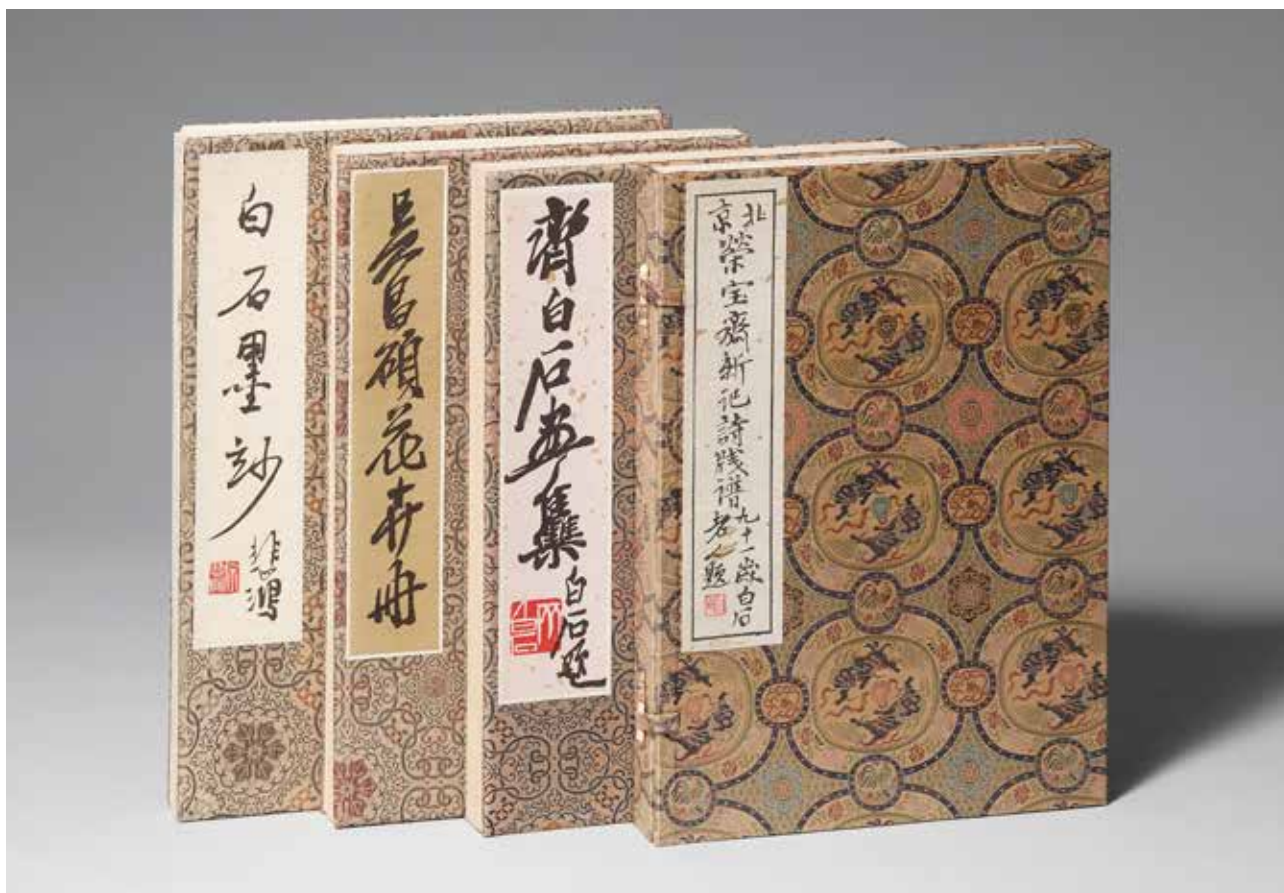 白石墨妙
悲鸿
吳昌碩花卉册
齊白石畫集
白石題
北京榮宝齋新记詩牋譜
九十一歲白石
老人題